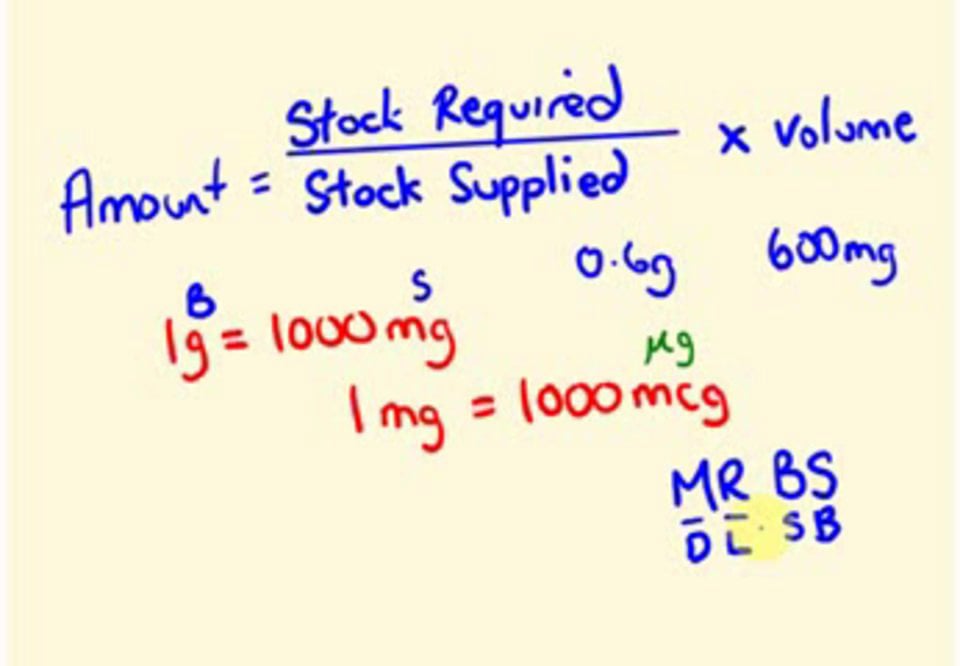 Amount = Stock Required / Stock Supplied x volume
0.6g 600mg
B S
1g = 1000mg
μg
1mg = 1000mcg
MR BS
DL SB